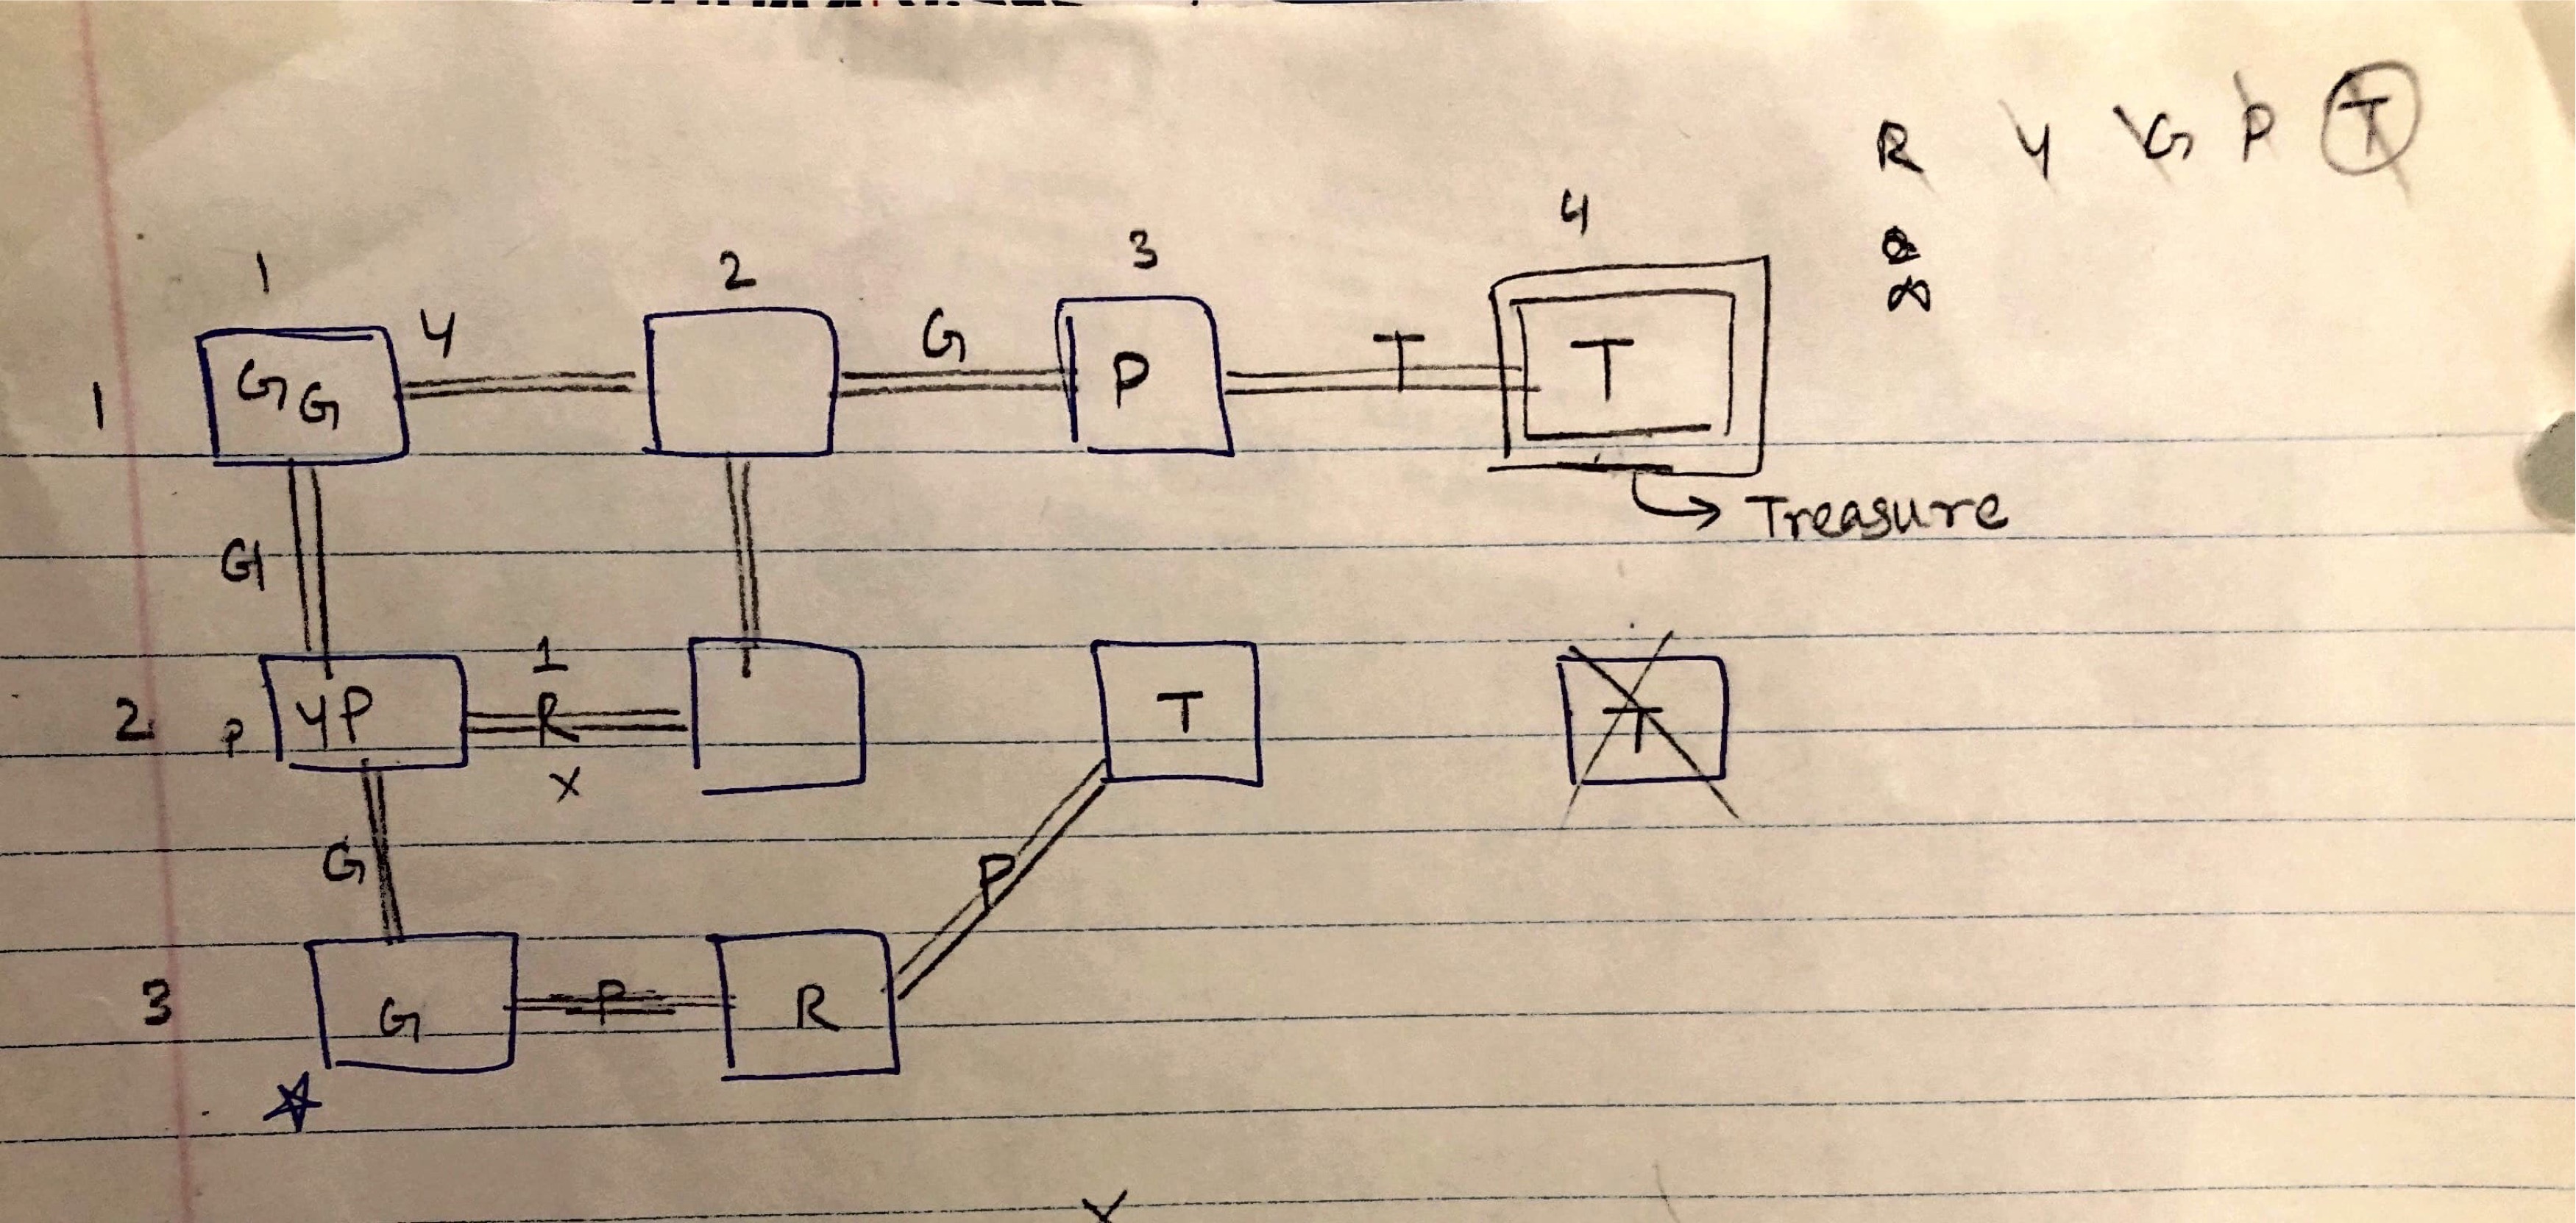 R Y G P T
1 2 3 4
1 GG Y G P T T
Treasure
G
2 P YP 1 R X T T
G P
3 G P R